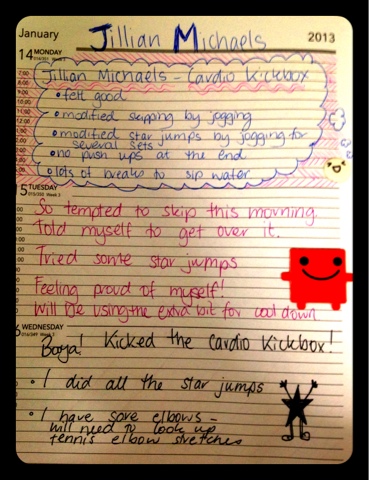 January Jillian Michaels 2013
14 MONDAY
Jillian Michaels - Cardio Kickbox
• felt good
• modified skipping by jogging
• modified star jumps by jogging for
several sets
• no push ups at the end
• lots of breaks to sip water
5 TUESDAY
So tempted to skip this morning
told myself to get over it.
Tried some star jumps
Feeling proud of myself!
Will be using the extra bit for cool down
WEDNESDAY
Booya! Kicked the cardio Kickbox!
• I did all the star jumps
• I have sore elbows -
will need to look up
tennis elbow stretches